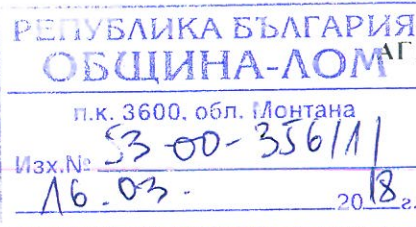 РЕПУБЛИКА БЪЛГАРИЯ
ОБЩИНА-ЛОМ
АГ
п.к. 3600, обл. Монтана
Изх.№ 53-00-356/1/
16.03. 2018 г.